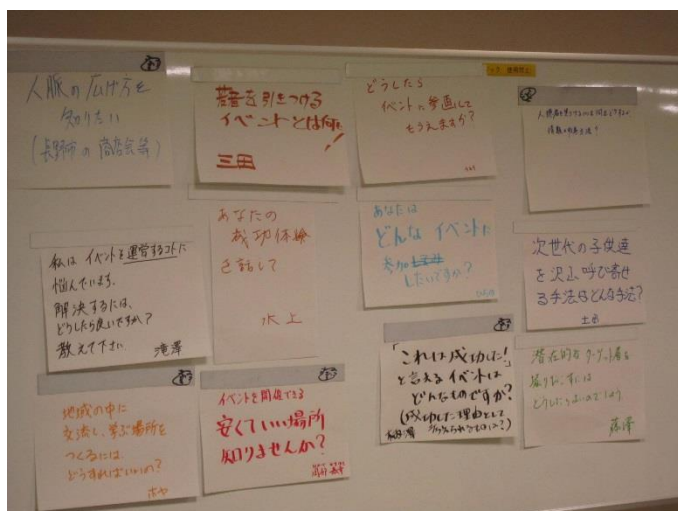 人脈の広げ方を
知りたい
(長野市の商店会等)
若者を引きつける
イベントとは何!
三田
どうしたら
イベントに参画して
もらえますか?
私は イベントを運営するコトに
悩んでいます。
解決するには、
どうしたら良いですか?
教えて下さい
滝澤
あなたの
成功体験
を話して
水上
あなたは
どんな イベントに
参加
したいですか?
次世代の子供達
を沢山呼び寄せ
る手法はどんな手法?
地域の中に
交流し、学ぶ場所を
つくるには、
どうすればいいの?
イベントを開催できる
安くていい場所
知りませんか?
「これは成功した!」
と言えるイベントは
どんなものですか?
(成功した理由として
考えられるものは?)
潜在的なターゲット層を
掘りおこすには
どうしたらよいのでしょうか
藤澤